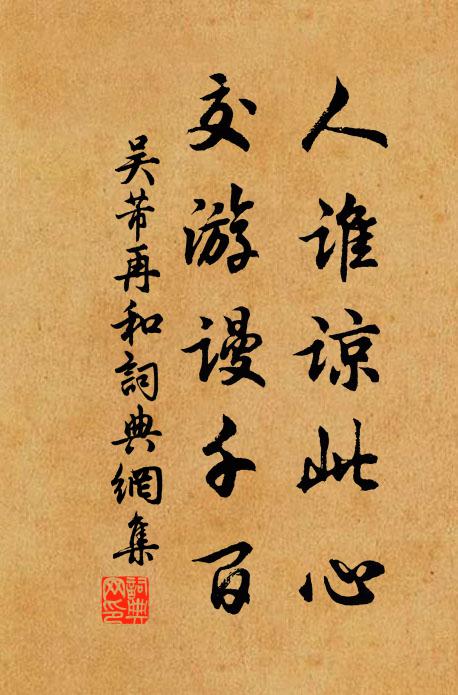 人谁谅此心
交游谩千百
吴芾再和詞典網集
詞典网印